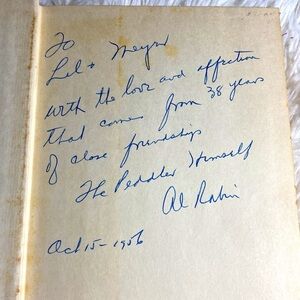 To
Lil + Meyer
with the love and affection
that comes from 38 years
of close friendship
The Peddler Himself
Al Rabin
Oct 15 - 1956